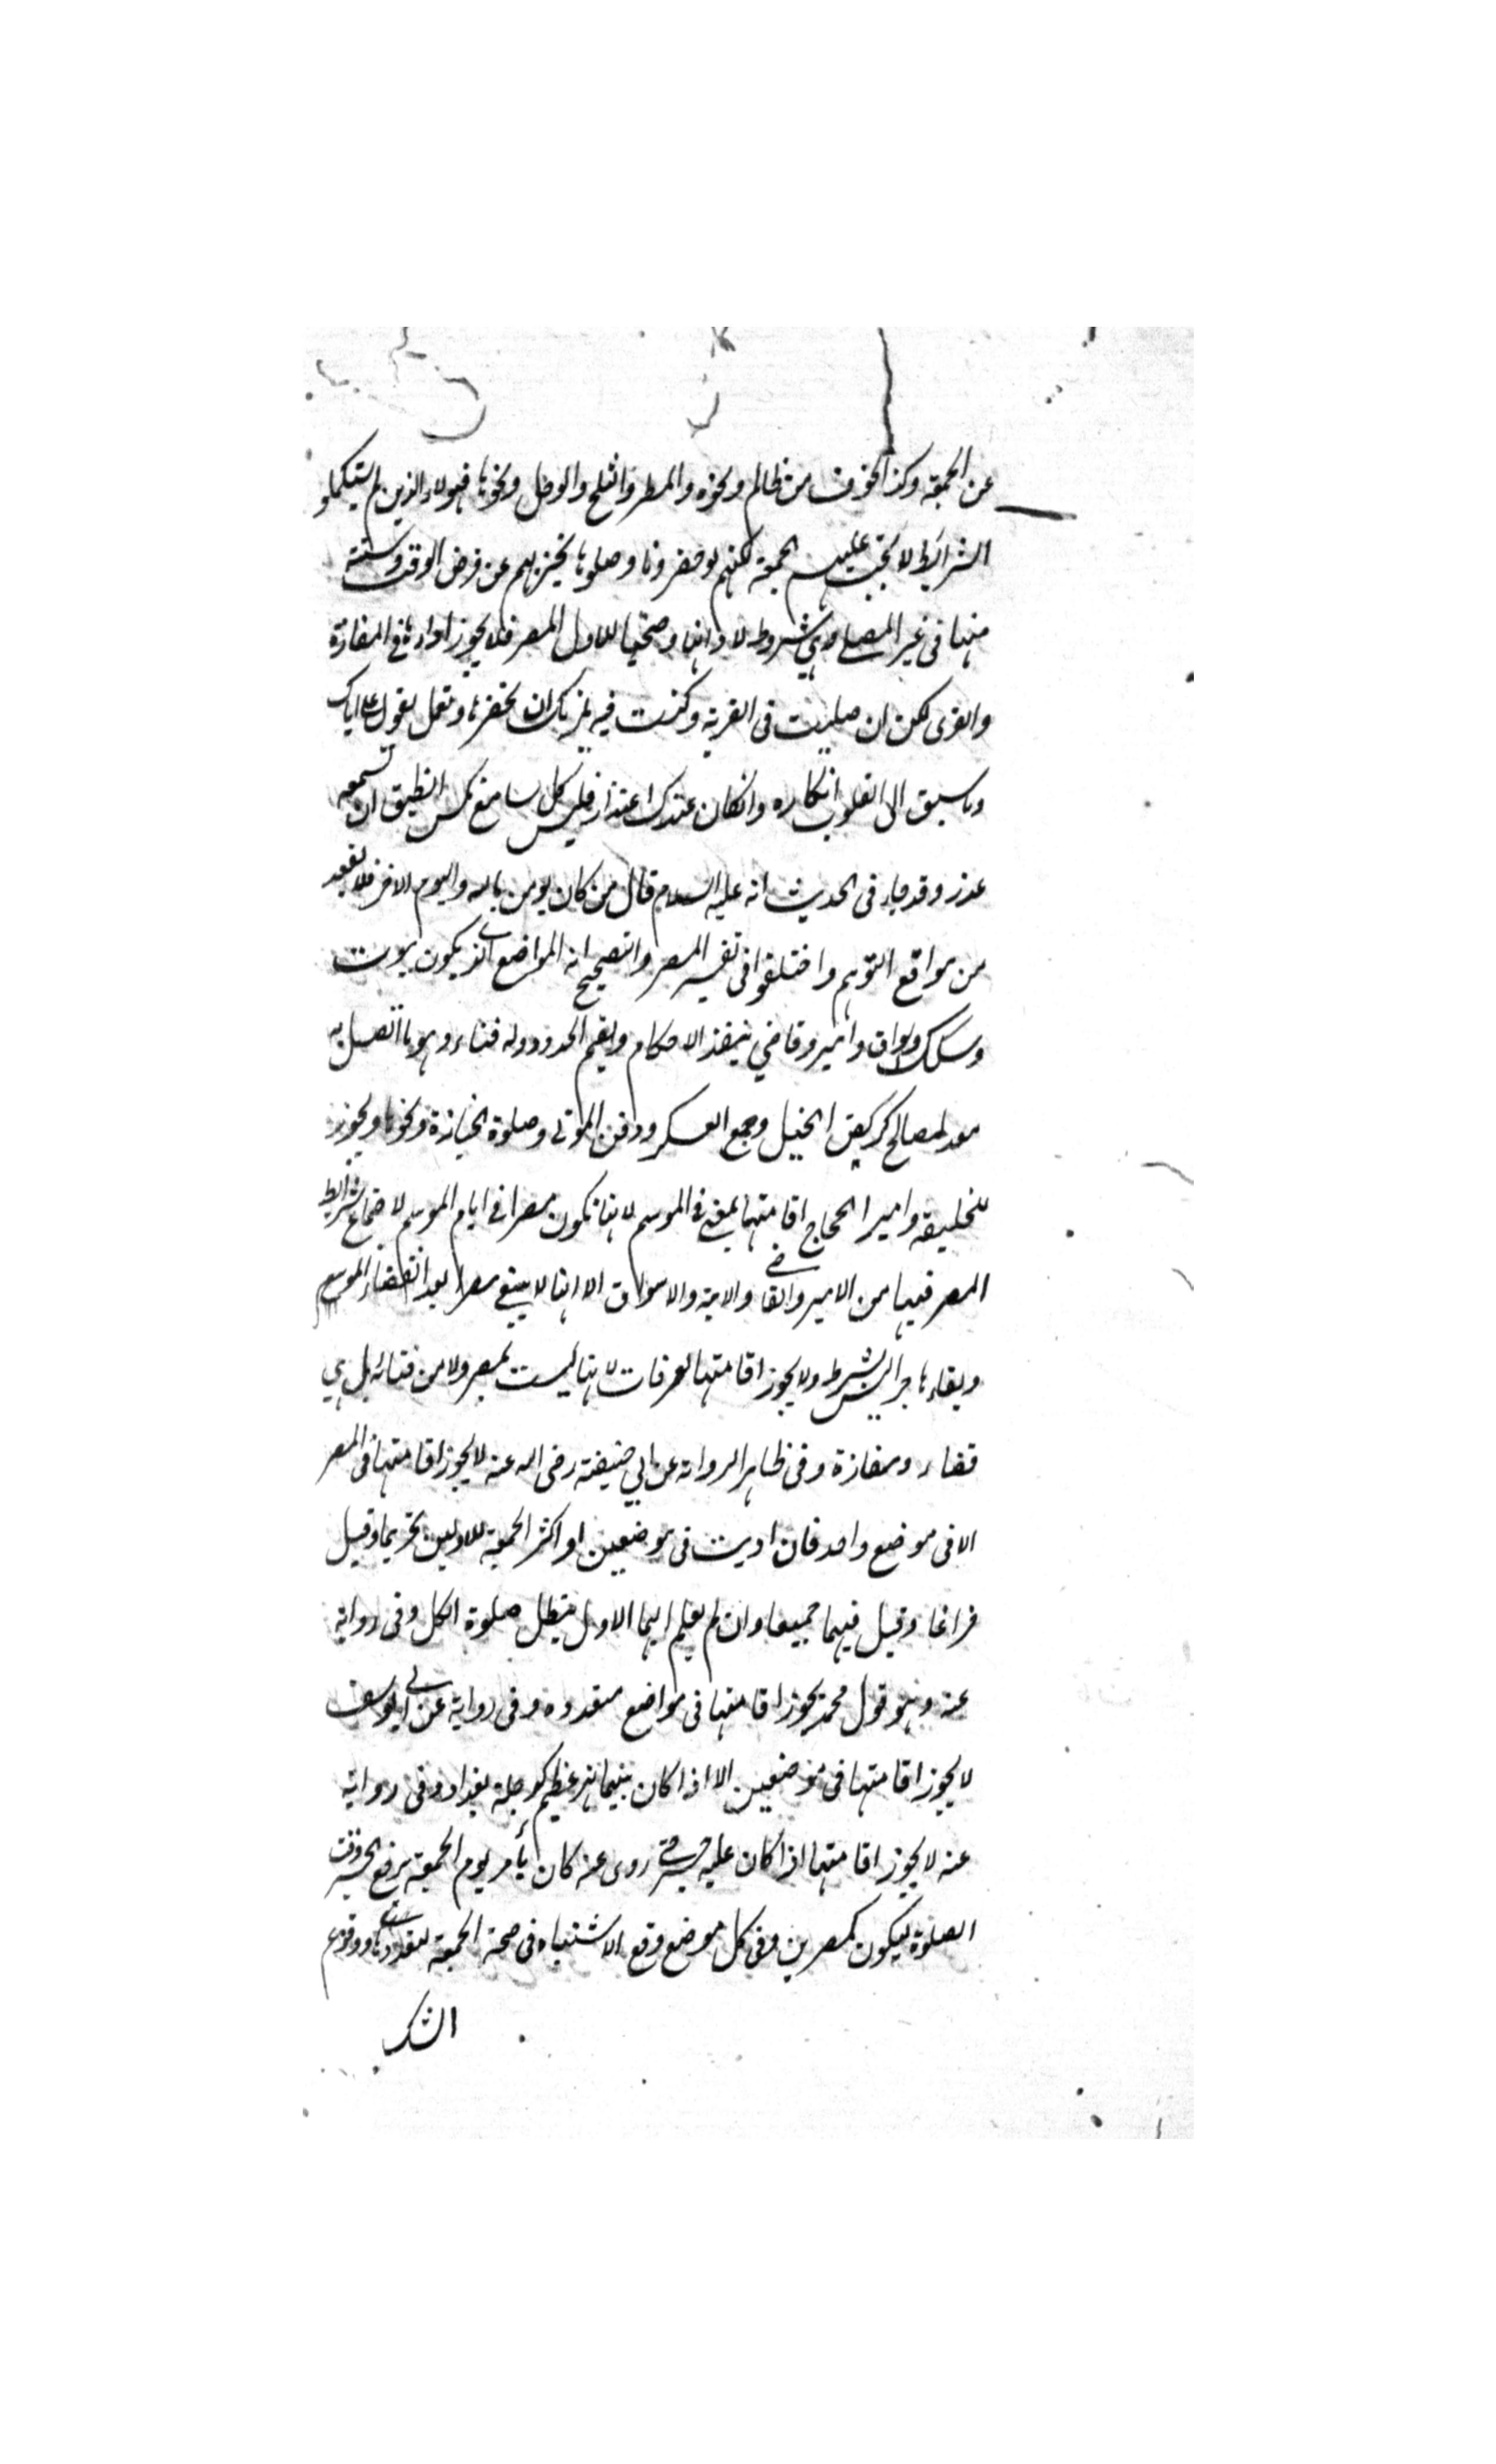 عن الجمعة وكذا الخوف من ظالم ونحوه والمطر والثلج والوحل ونحوها فهولاء الذين لم يستكملوا
الشرايط لا تجب عليهم الجمعة لكنهم لو حضرونا وصلوها يجزيهم عن فرض الوقت وستة
منها في غير المصلي وهي شروط لادائها وصحتها الاول المصر فلا يجوز اداءها في المفازة
والقرى لكن ان صليت في القرية وكنت فيه يلزمك ان تحضرها وتعمل بقول علي اياك
وما سبق الى القلوب انكاره وانكان عندك اعتذاره فليس كل سامع نكرا يطيق ان تسمعه
عذر وقد جاء في الحديث انه عليه السلام قال من كان يومن بالله واليوم الاخر فلا يقعد
من مواقع التهم واختلفوا في تفسير المصر والصحيح انه المواضع الذي يكون بيوت
وسكك واسواق وامير وقاضي ينفذ الاحكام ويقيم الحدود وله فناء وهو ما اتصل به
معد لمصالح كركض الخيل وجمع العسكر ودفن الموتى وصلوة الجنازة ونحوها ويجوز
للخليفة وامير الحجاج اقامتها بمنى في الموسم لانها تكون مصرا في ايام الموسم لاجتماع شرايط
المصر فيها من الامير والقاضي والابنية والاسواق الا انها لا يبقى مصرا بعد انقضاء الموسم
وبقاءها جر ليس بشرط ولا يجوز اقامتها بعرفات لانها ليست بمصر ولا من فنائه بل هي
فضاء ومفازة وفي ظاهر الرواية عن ابي حنيفة رضى الله عنه لا يجوز اقامتها في المصر
الا في موضع واحد فان اديت في موضعين او اكثر الجمعة للاولين تحريما وقيل
فراغا وقيل فيهما جميعا وان لم يعلم ايهما الاول يبطل صلوة الكل وفي رواية
عنه وهو قول محمد يجوز اقامتها في مواضع متعددة وفي رواية عن ابي يوسف
لا يجوز اقامتها في موضعين الا اذا كان بينهما نهر عظيم كدجلة بغداد وفي رواية
عنه لا يجوز اقامتها اذا كان عليه جسر حتى روى عنه كان يأمر يوم الجمعة برفع الجسر وقت
الصلوة ليكون كمصرين وفي كل موضع وقع الاشتباه في صحة الجمعة لتعددها ووقوع
الشك